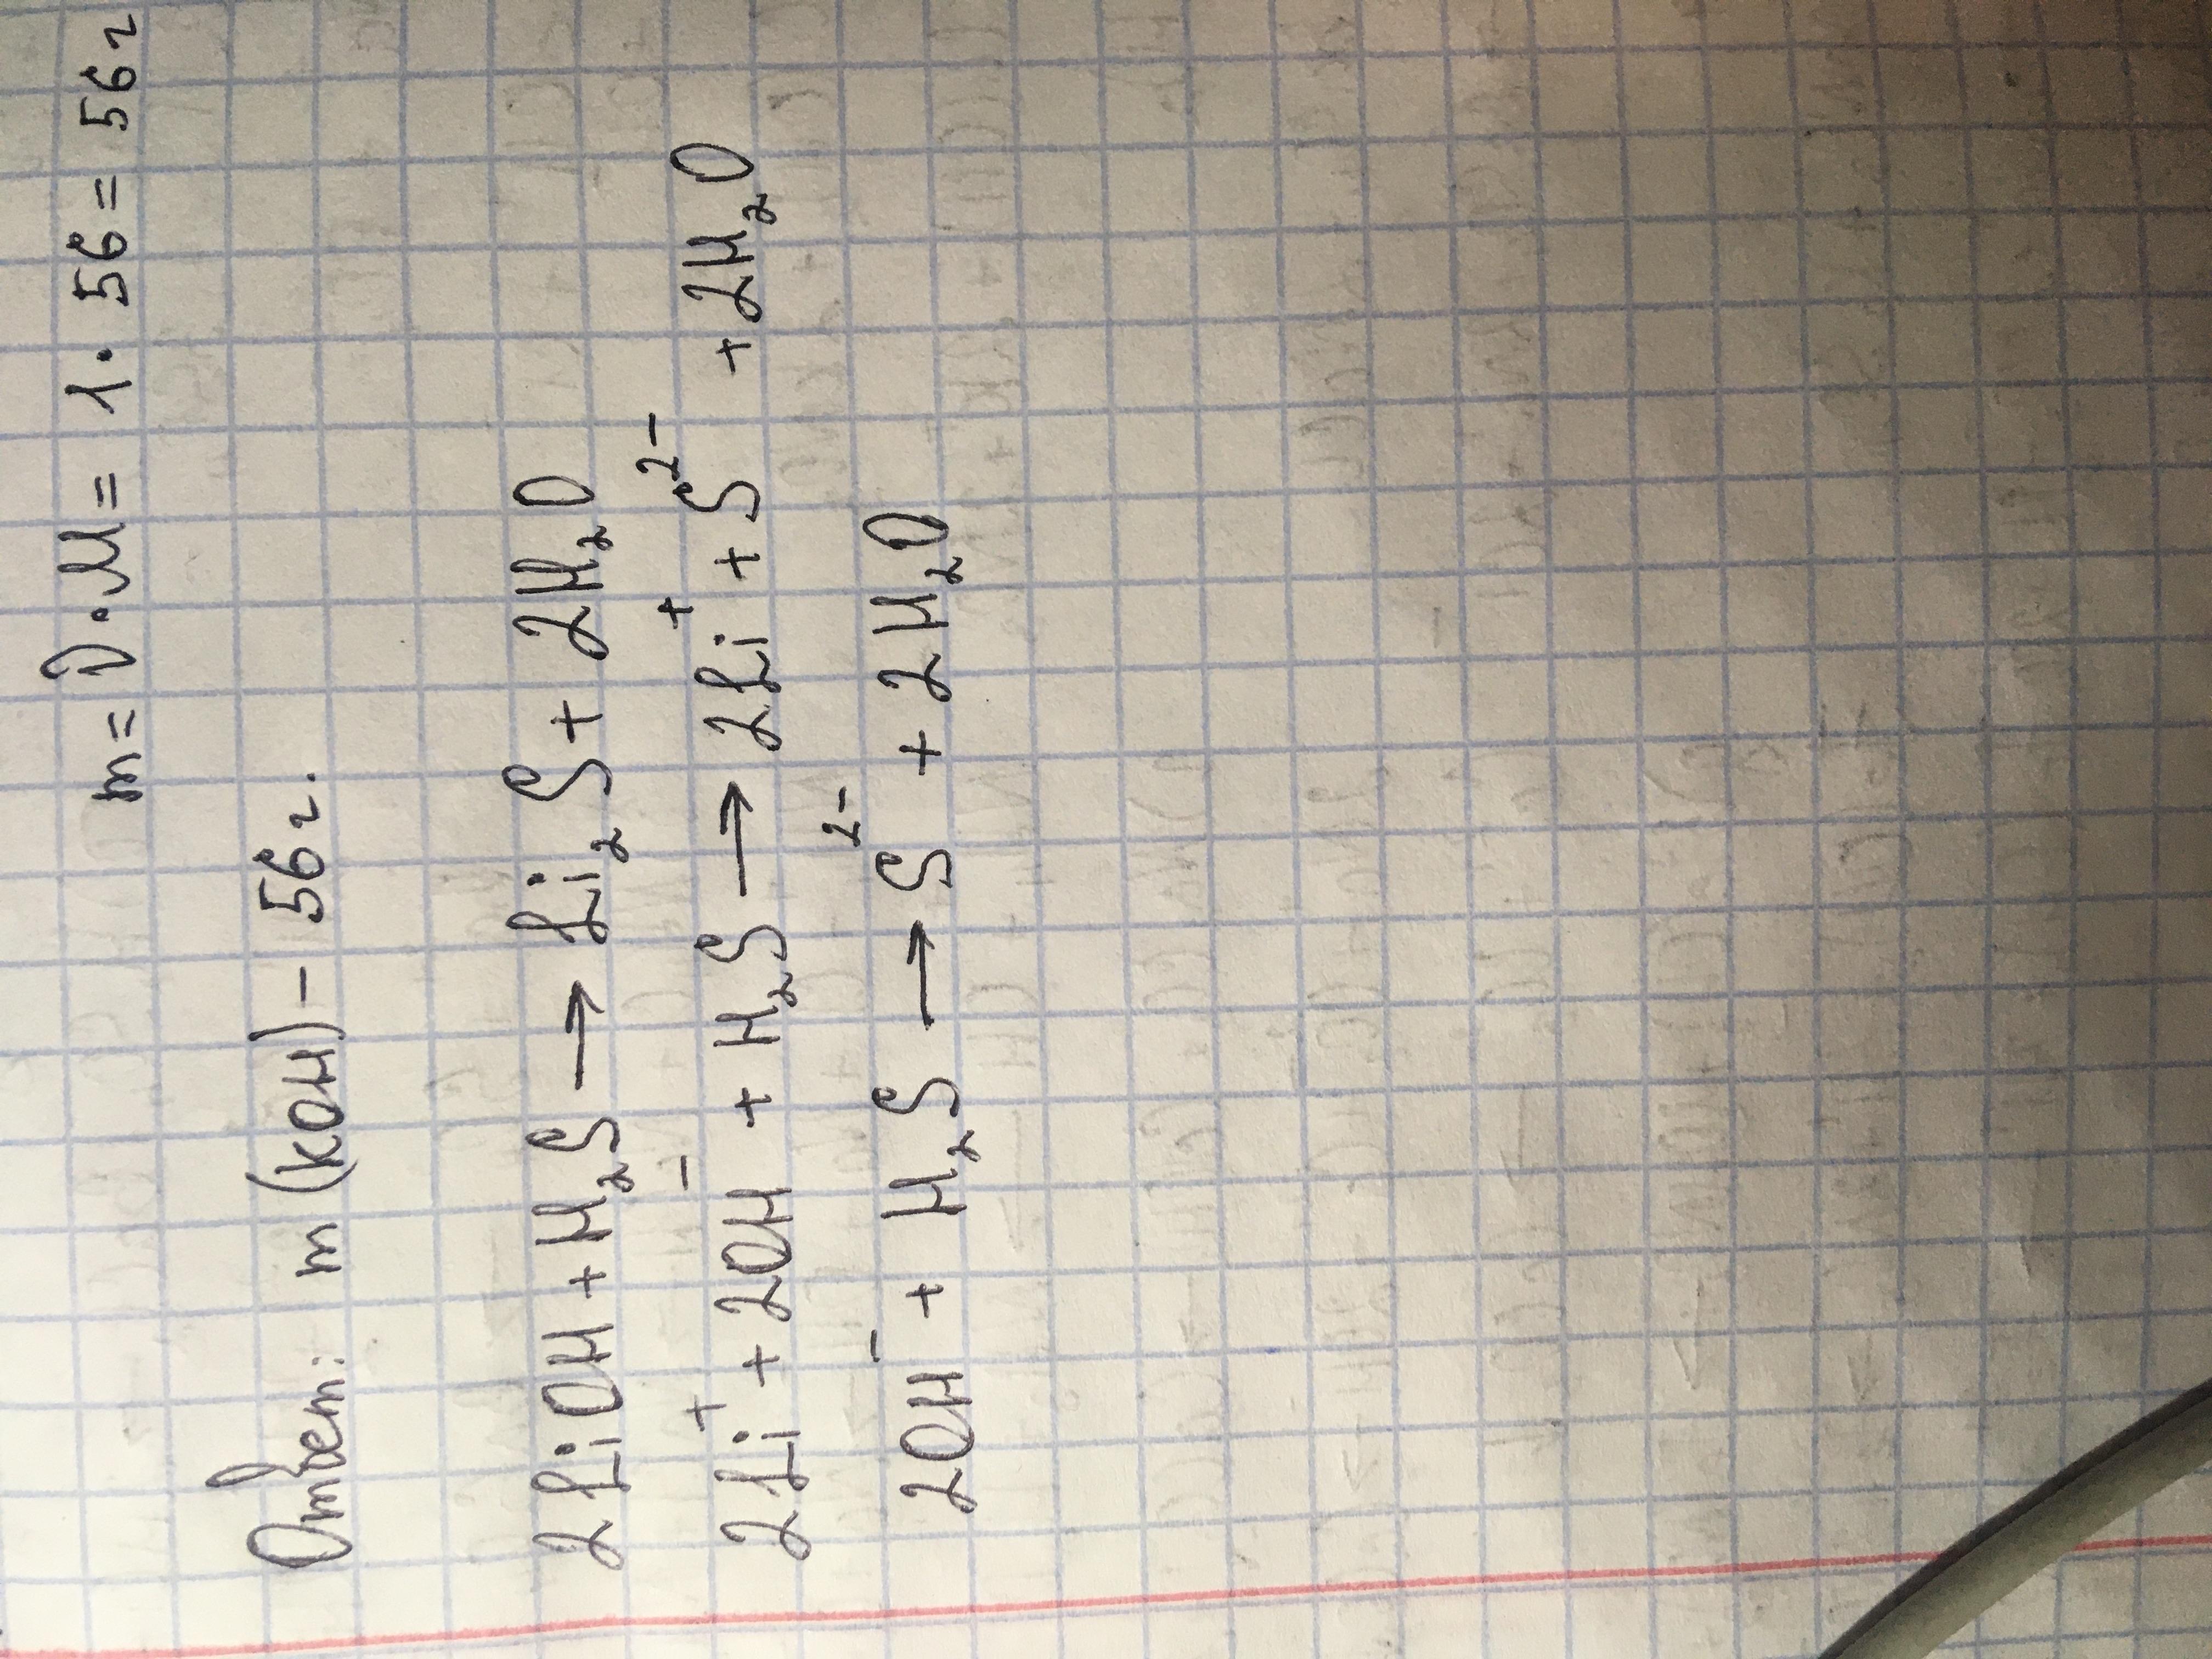 m = ν · M = 1 · 56 = 56 г
Ответ: m (KOH) – 56 г.
2LiOH + H₂S → Li₂S + 2H₂O
2Li⁺ + 2OH⁻ + H₂S → 2Li⁺ + S²⁻ + 2H₂O
2OH⁻ + H₂S → S²⁻ + 2H₂O